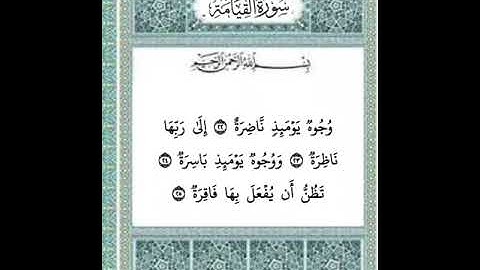 سُورَةُ الْقِيَامَةِ
بِسْمِ اللَّهِ الرَّحْمَٰنِ الرَّحِيمِ
وُجُوهٌ يَوْمَئِذٍ نَّاضِرَةٌ ٢٢ إِلَىٰ رَبِّهَا
نَاظِرَةٌ ٢٣ وَوُجُوهٌ يَوْمَئِذٍ بَاسِرَةٌ ٢٤
تَظُنُّ أَن يُفْعَلَ بِهَا فَاقِرَةٌ ٢٥